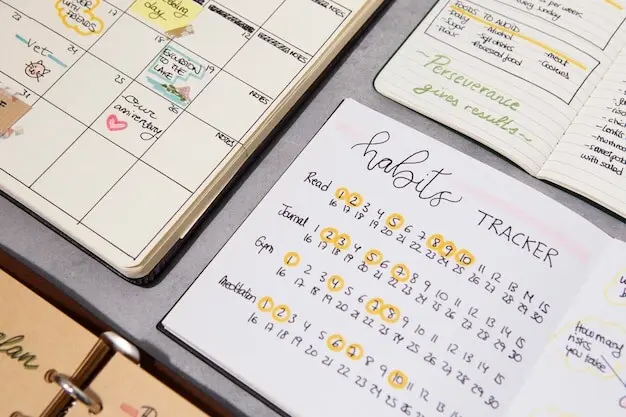 WITH
FRIENDS
doing
day
22
23
24
vet
18
EXCURSION
TO THE
LAKE
19
NOTES
25
our
anniversary
26
NOTES
NOTES
plan
FOODS TO AVOID
Alcohol
Sugar
flour
meat
Cookies
processed food
Perseverance
gives results
with salad
habits
TRACKER
Read 1 2 3 4 5 6 7 8 9 10 11 12 13 14 15
16 17 18 19 20 21 22 23 24 25 26 27 28 29 30
Journal 1 2 3 4 5 6 7 8 9 10 11 12 13 14 15
16 17 18 19 20 21 22 23 24 25 26 27 28 29 30
Gym 1 2 3 4 5 6 7 8 9 10 11 12 13 14 15
16 17 18 19 20 21 22 23 24 25 26 27 28 29 30
Meditation 1 2 3 4 5 6 7 8 9 10 11 12 13 14 15
16 17 18 19 20 21 22 23 24 25 26 27 28 29 30
How many
you take